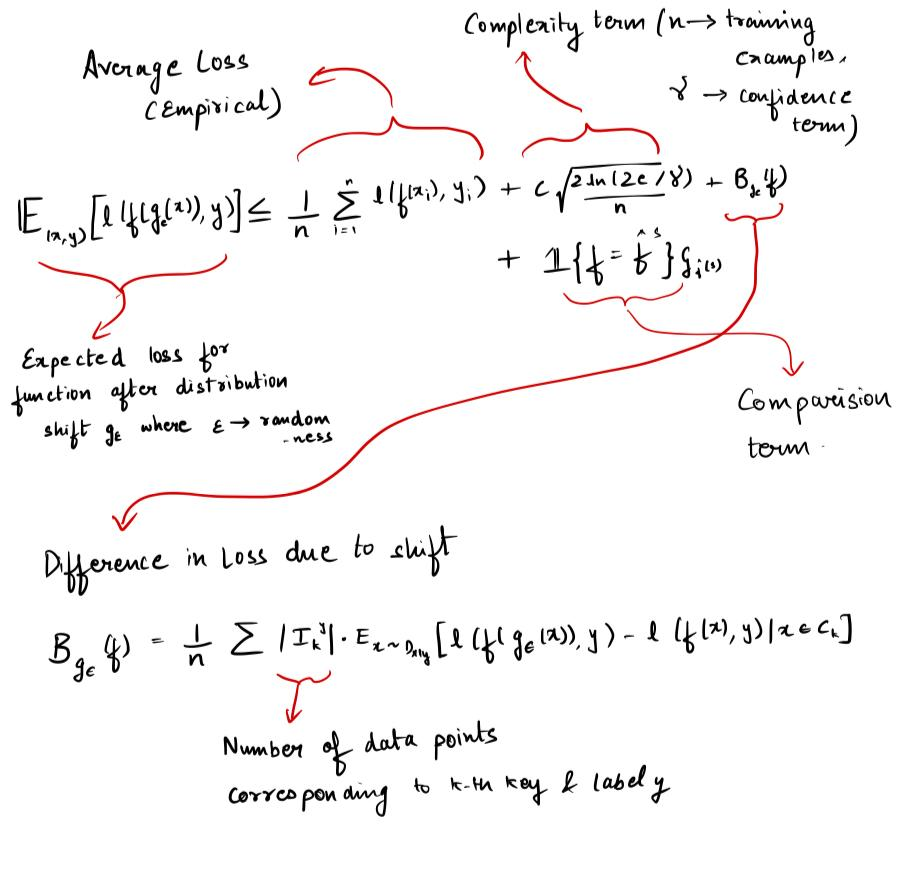 Complexity term (n → training
examples,
γ → confidence
term)
Average Loss
(Empirical)
𝔼_(x,y) [ℓ(f(g_ϵ(x)), y)] ≤ 1/n Σ_{i=1}^{n} ℓ(f(x_i), y_i) + C √(2 ln(2e/γ)/n) + B_{g_ϵ}(f)
+ 𝟙{f = f̂^s}
Expected loss for
function after distribution
shift g_ε where ε → random
-ness
Comparision
term.
Difference in Loss due to shift
B_{g_ϵ}(f) = 1/n Σ |I_k^y| · E_{x∼D_{x|y}} [ℓ(f(g_ϵ(x)), y) − ℓ(f(x), y) | x ∈ C_k]
Number of data points
corresponding to k-th key & label y